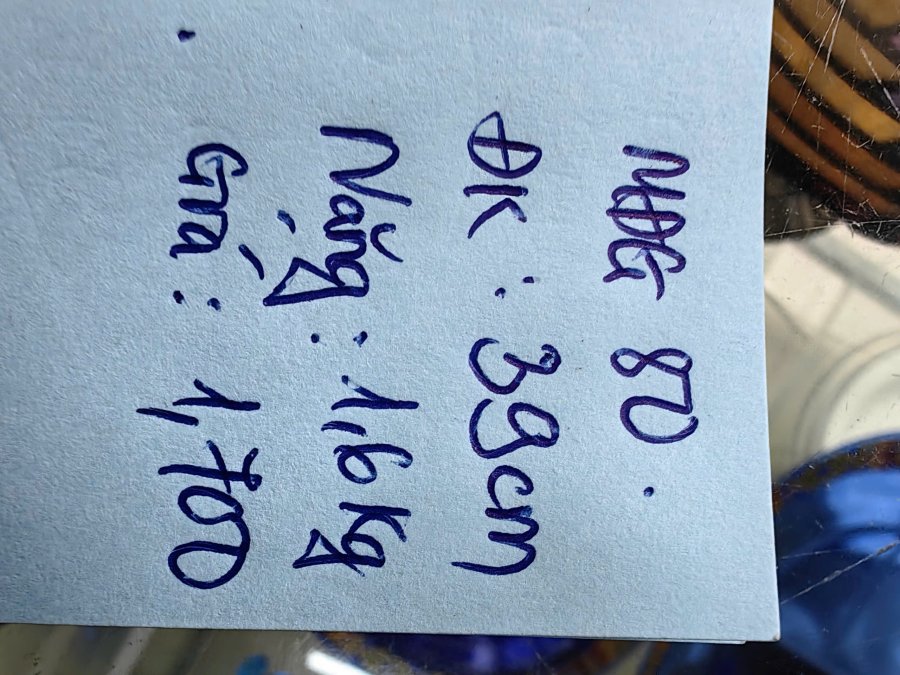 NĐG 80.
ĐK : 39cm
Nặng : 1,6 kg
Giá : 1,700